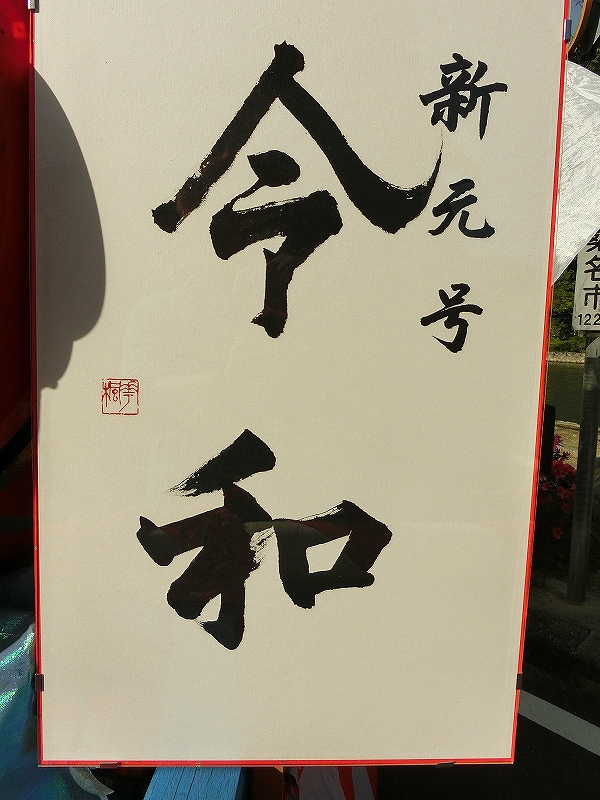 新元号
令和
名市
122